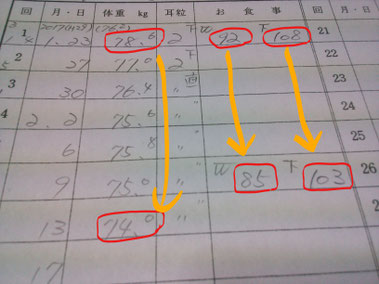 回 月・日 体重 kg 耳粒 お食事 回
1 2017(H29) 1.23 78.6 2 下 W 92 下 108 21
2 27 77.0 2 下 22
3 30 76.4 〃 23
4 2.2 75.6 〃 24
6 75.8 〃 25
9 75.0 〃 W 85 下 103 26
13 74.0 〃
17